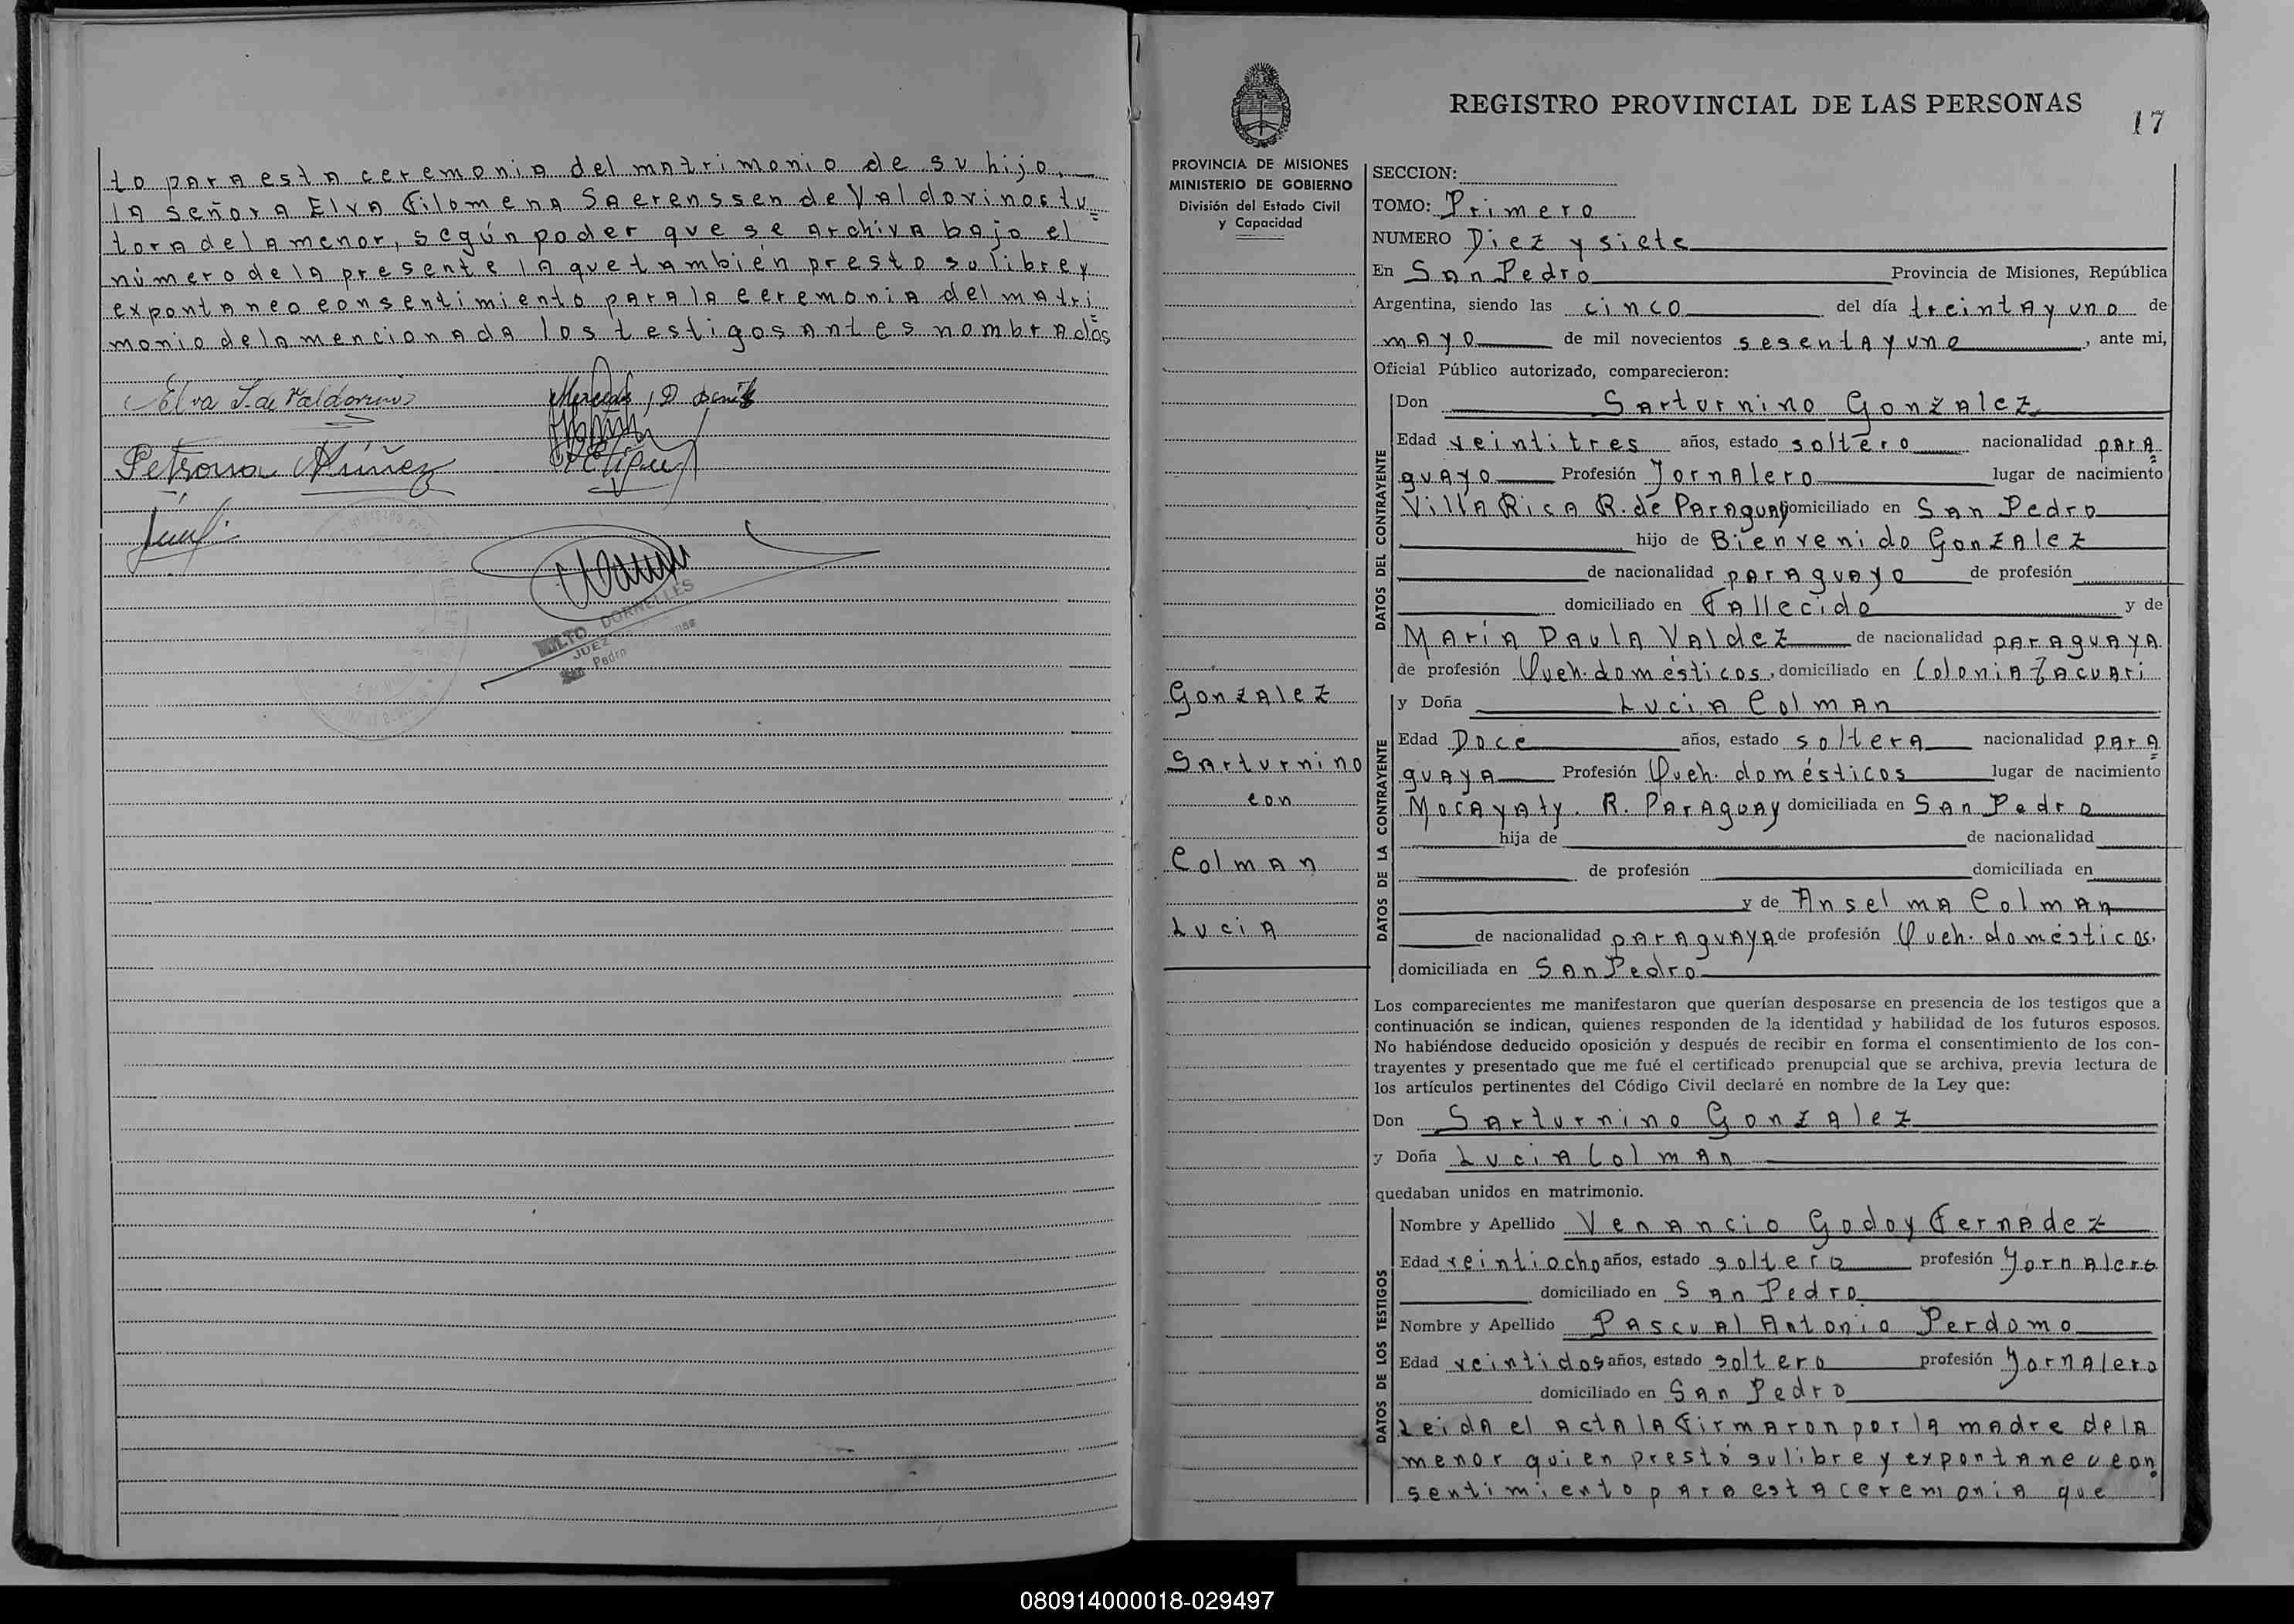 to para esta ceremonia del matrimonio de su hijo,
la señora Elva Filomena Saerenssen de Valdovinos tu=
tora de la menor, según poder que se archiva bajo el
número de la presente la que también presto su libre y
expontaneo consentimiento para la ceremonia del matri=
monio de la mencionada los testigos antes nombrados
Elva S. de Valdovinos
Petrona Núñez
MILTO DORNELLES
JUEZ
San Pedro
REGISTRO PROVINCIAL DE LAS PERSONAS
17
PROVINCIA DE MISIONES
MINISTERIO DE GOBIERNO
División del Estado Civil
y Capacidad
Gonzalez
Sarturnino
con
Colman
Lucia
SECCION:
TOMO: Primero
NUMERO Diez y siete
En San Pedro Provincia de Misiones, República
Argentina, siendo las cinco del día treinta y uno de
mayo de mil novecientos sesenta y uno, ante mi,
Oficial Público autorizado, comparecieron:
DATOS DEL CONTRAYENTE
Don Sarturnino Gonzalez
Edad veintitres años, estado soltero nacionalidad para=
guayo Profesión Jornalero lugar de nacimiento
Villa Rica R. de Paraguay domiciliado en San Pedro
hijo de Bienvenido Gonzalez
de nacionalidad paraguayo de profesión
domiciliado en Fallecido y de
Maria Paula Valdez de nacionalidad paraguaya
de profesión Queh. domésticos, domiciliado en Colonia Tacuari
DATOS DE LA CONTRAYENTE
y Doña Lucia Colman
Edad Doce años, estado soltera nacionalidad para=
guaya Profesión Queh. domésticos lugar de nacimiento
Mocayaty. R. Paraguay domiciliada en San Pedro
hija de de nacionalidad
de profesión domiciliada en
y de Anselma Colman
de nacionalidad paraguaya de profesión Queh. domésticos,
domiciliada en San Pedro
Los comparecientes me manifestaron que querían desposarse en presencia de los testigos que a
continuación se indican, quienes responden de la identidad y habilidad de los futuros esposos.
No habiéndose deducido oposición y después de recibir en forma el consentimiento de los con-
trayentes y presentado que me fué el certificado prenupcial que se archiva, previa lectura de
los artículos pertinentes del Código Civil declaré en nombre de la Ley que:
Don Sarturnino Gonzalez
y Doña Lucia Colman
quedaban unidos en matrimonio.
DATOS DE LOS TESTIGOS
Nombre y Apellido Venancio Godoy Fernadez
Edad veintiocho años, estado soltero profesión Jornalero
domiciliado en San Pedro
Nombre y Apellido Pascual Antonio Perdomo
Edad veintidos años, estado soltero profesión Jornalero
domiciliado en San Pedro
Leida el acta la firmaron por la madre de la
menor quien prestó su libre y expontaneo con=
sentimiento para esta ceremonia que
080914000018-029497